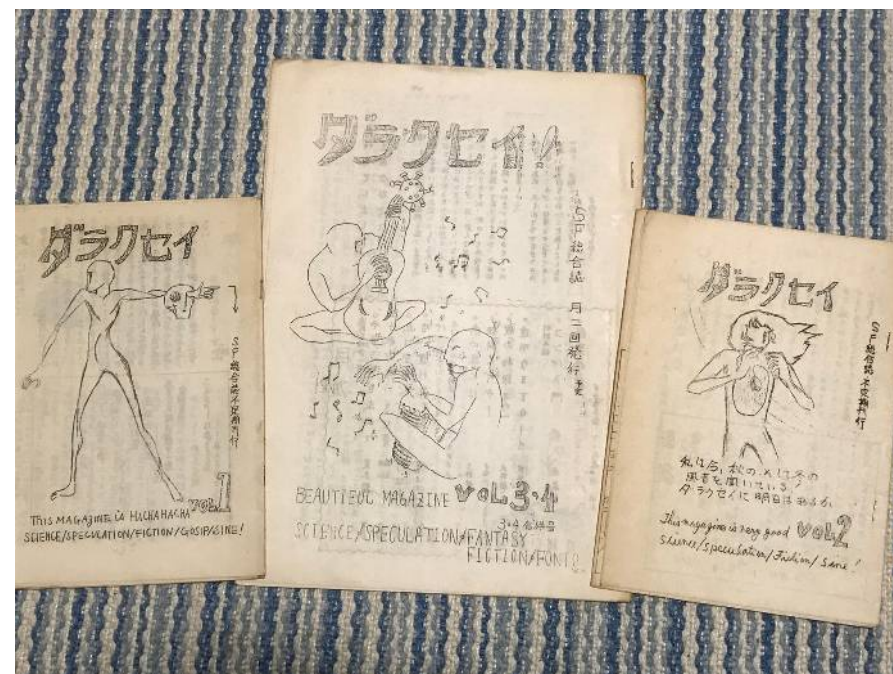 ダラクセイ
SF総合誌不定期刊行
VOL1
THIS MAGAZINE IS HACHAHACHA
SCIENCE/SPECULATION/FICTION/GOSIP/SINE!
ダラクセイ!
SF総合誌 月二回発行予定
BEAUTIFUL MAGAZINE VOL3・4
3・4合併号
SCIENCE/SPECULATION/FANTASY
FICTION/FONTO
ダラクセイ
SF総合誌不定期刊行
私は今、秋の、そして冬の
風音を聞いている!
ダラクセイに明日はあるか、
This magazine is very good VOL2
Science/Speculation/Fiction/Sine!